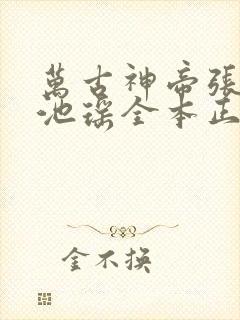 萬古神帝張
池瑤全本正
金不換